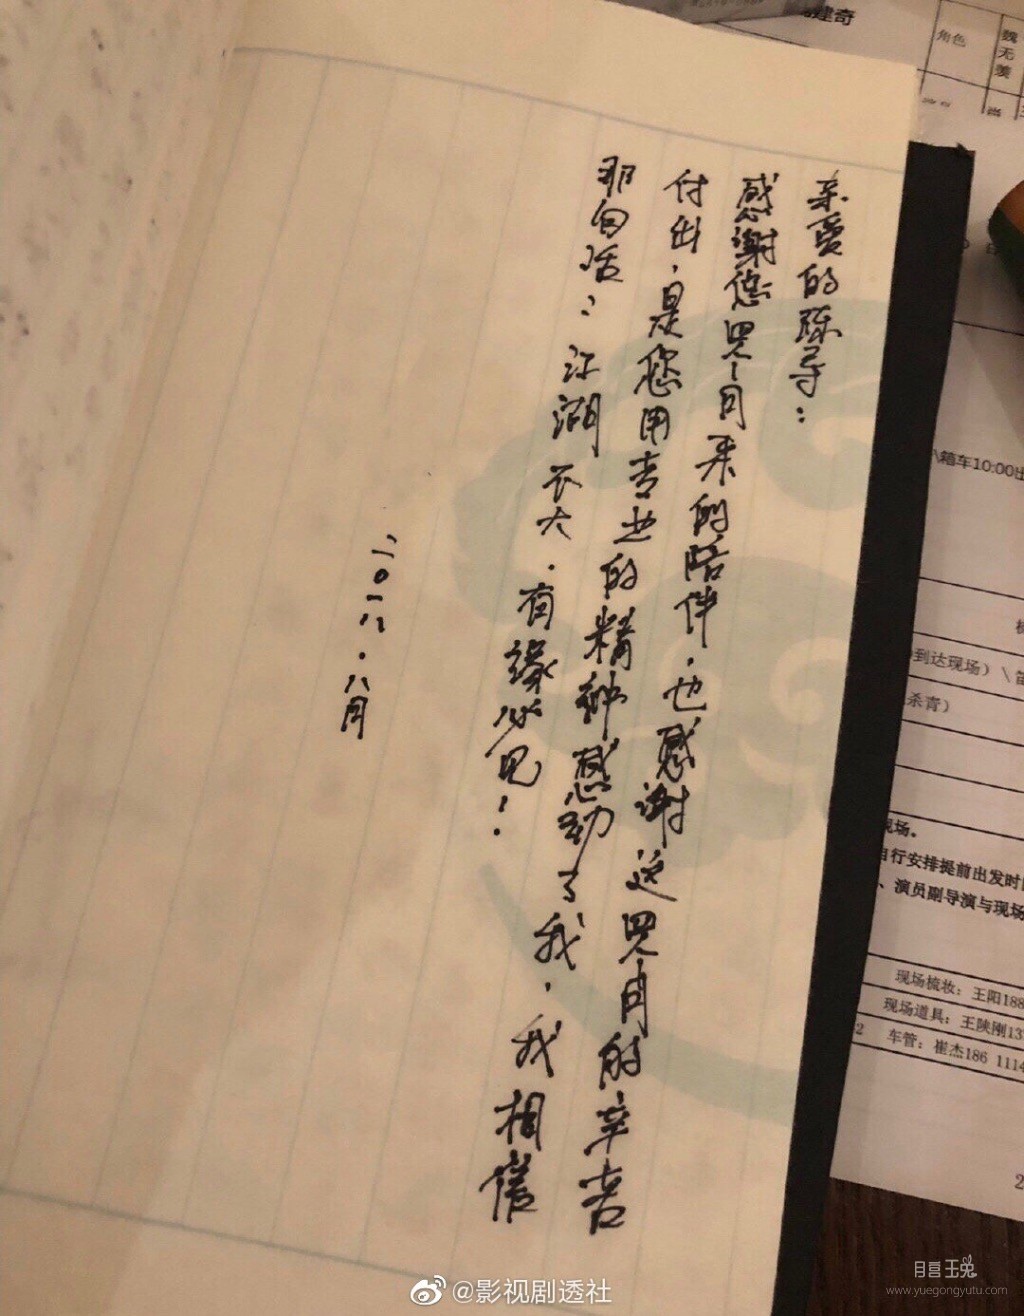 亲爱的陈寻：
感谢您四个月来的陪伴，也感谢这四个月的辛苦
付出，是您用专业的精神感动了我，我相信
那句话：江湖不大，有缘必见！
二〇一八．八月
建奇
角色
魏无羡
\箱车10:00出
到达现场）\
杀青）
现场。
自行安排提前出发时
、演员副导演与现场
现场梳妆：王阳188
现场道具：王陕刚13
2 车管：崔杰186 1114
2
@影视剧透社
月宫玉兔
www.yuegongyutu.com